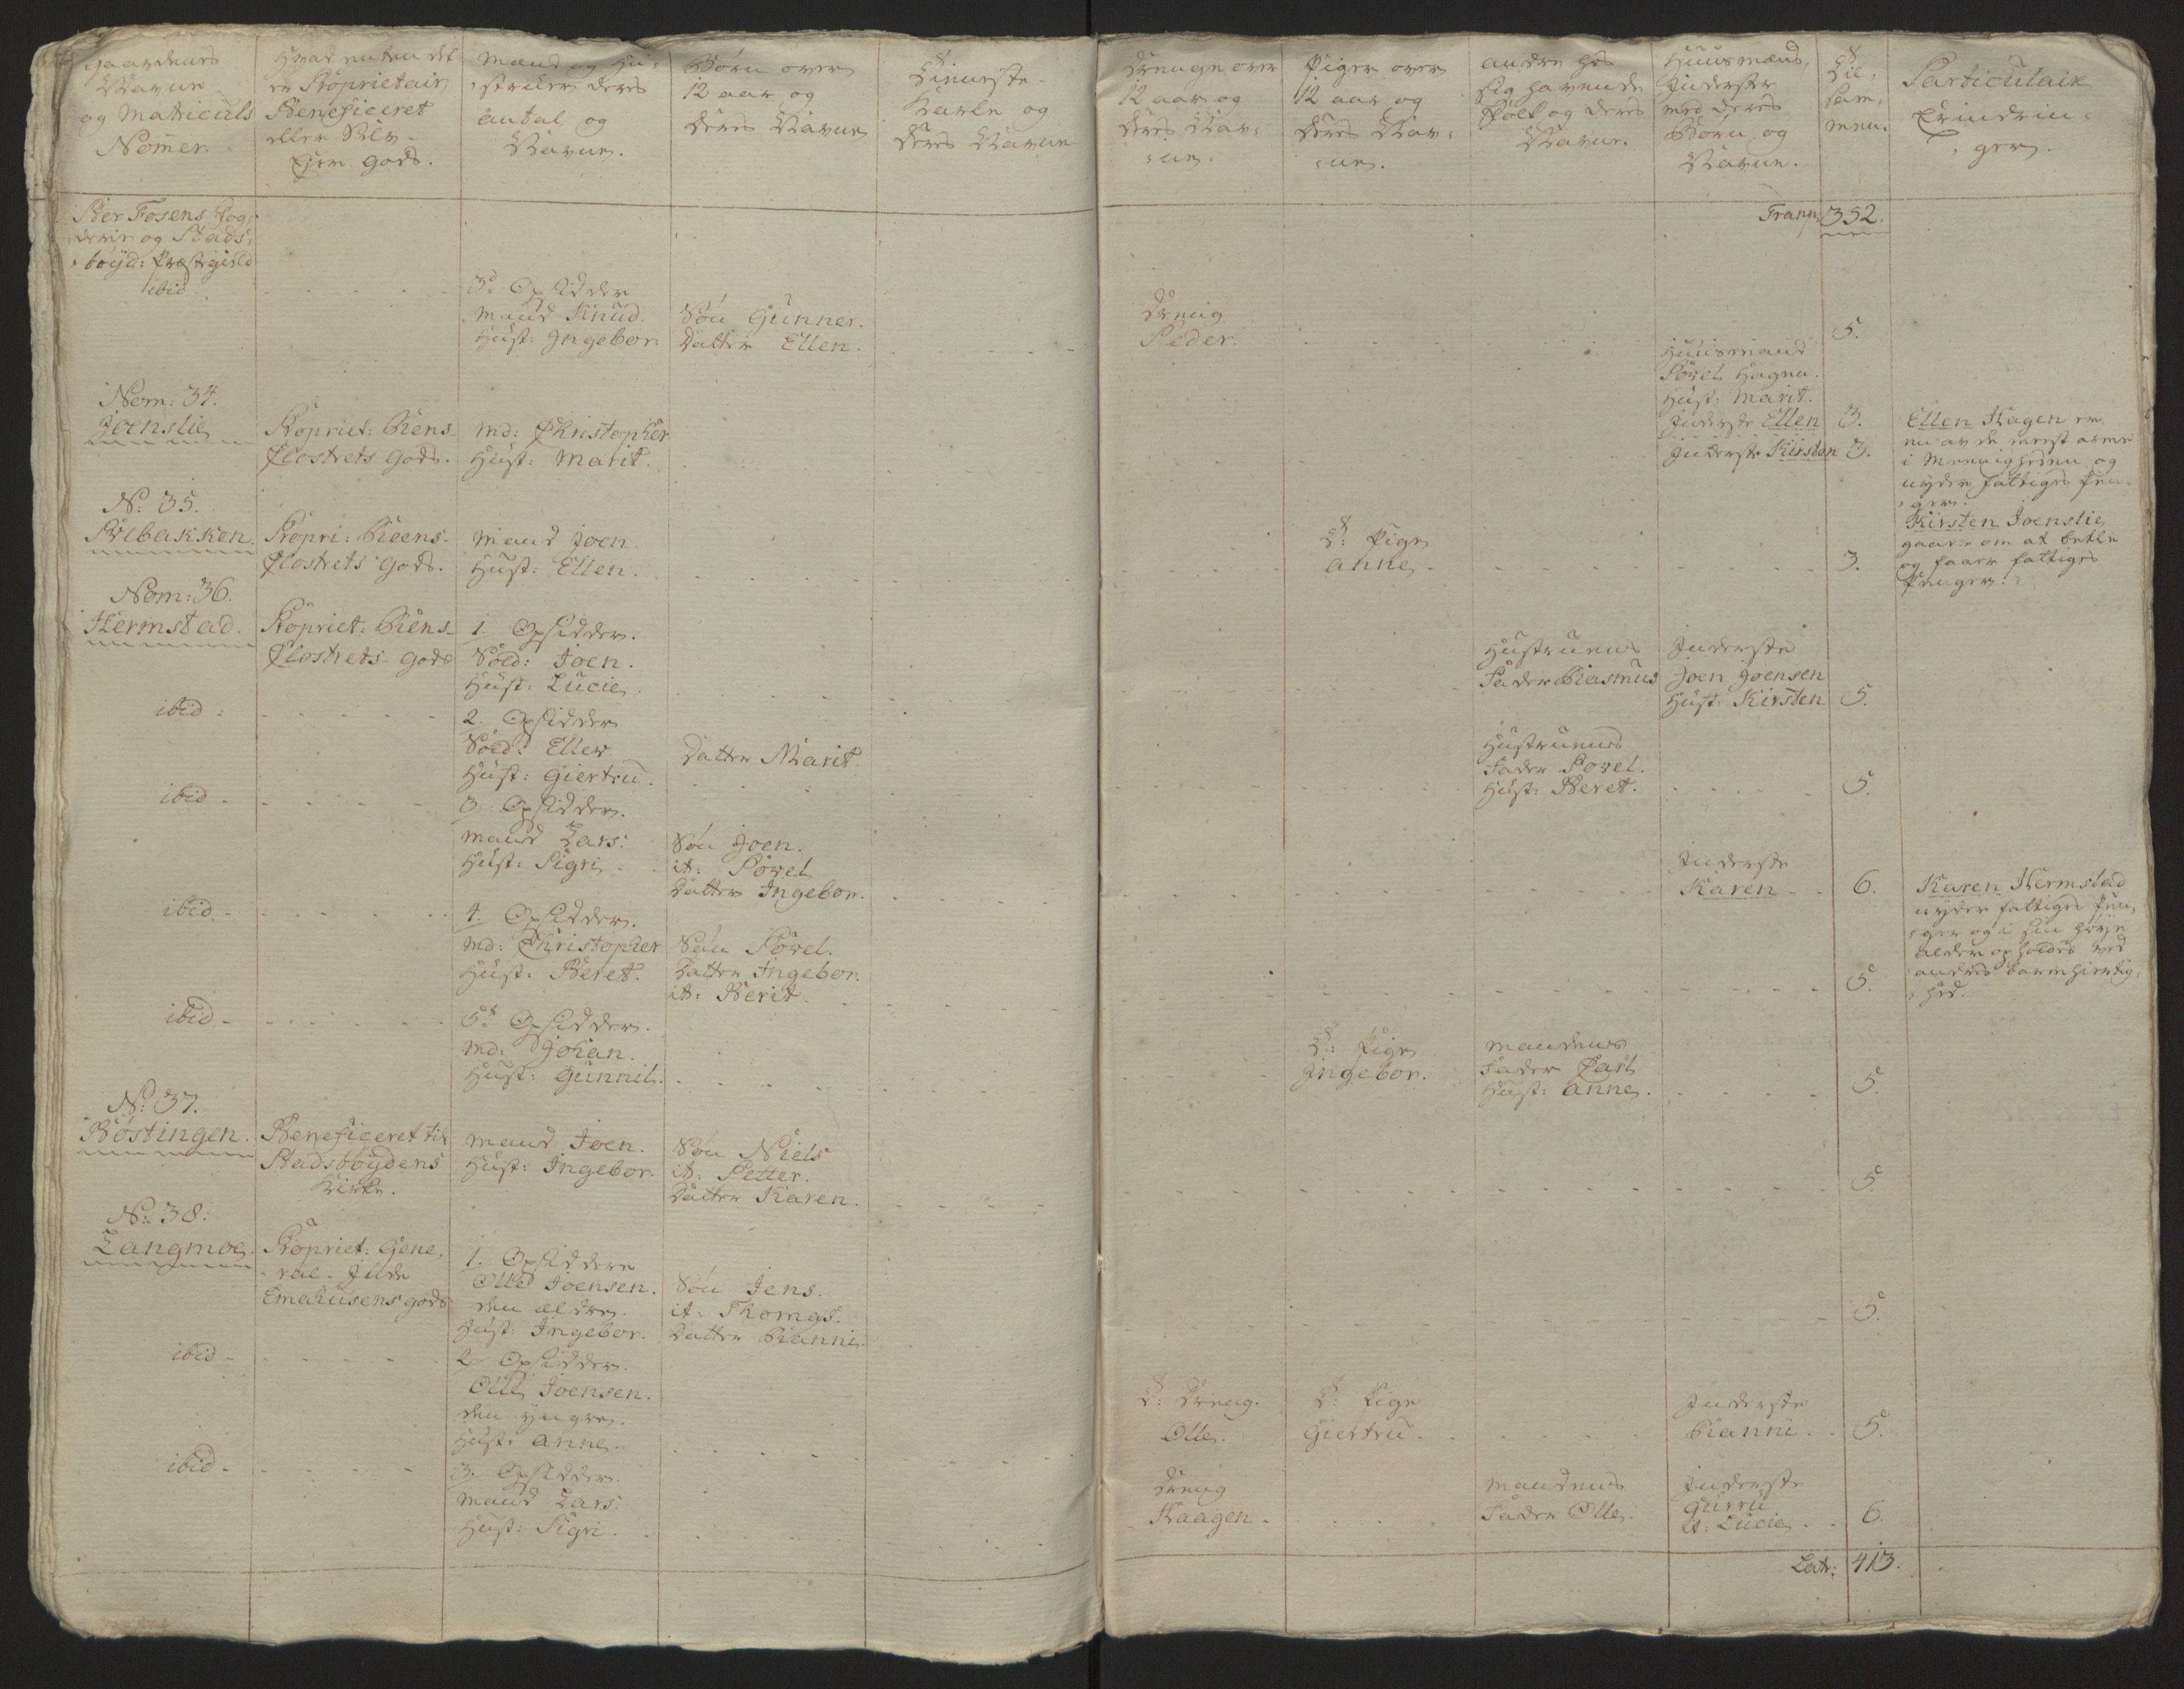 Gaardenes
Navne
og Matriculs
Nomer.
Hvad enten det
er Proprietair,
Beneficeret
eller Selv-
Ejer gods.
Mænd og Hu-
struer deres
antal og
Navne.
Børn over
12 aar og
deres Navne
Tieneste-
Karle og
deres Navne
Drenge over
12 aar og
deres Nav-
ne.
Piger over
12 aar og
deres Nav-
ne.
andre hos
sig havende
Folk og deres
Navne.
Huusmænd,
Inderster
med deres
Børn og
Navne.
Til-
sam-
men.
Particulair
Erindrin-
ger.
Per Fosens Fog-
derie og Stads-
bøyd: Præstegield
ibid
Transp: 352.
3de Opsidder
Mand Knud.
Hust: Ingebor.
Søn Gunner.
Datter Ellen.
Dreng
Peder.
5.
Nom: 34.
Joenslie
Propriet: Reens
Closters Gods.
Md: Christopher
Hust: Marit.
Huusmand
Povel Hagen.
Hust: Marit.
Inderste Ellen 3.
Inderste Kirsten 3.
Ellen Hagen er
en av de meest arme
i Meenigheden og
nyder fattiges Pen-
ger.
Kirsten Joenslie
gaar om at betle
og faaer fattiges
Penger.
No: 35.
Brebakken.
Propri: Reens-
Closters Gods.
Mand Joen
Hust: Ellen.
T: Pige
Anne
3.
Nom: 36.
Hermstad.
Propriet: Reens-
Closters Gods
1. Opsidder.
Sold: Joen.
Hust: Lucie.
Hustruens
Fader Rasmus
Inderste
Joen Joensen
Hust: Kirsten
5.
ibid:
2. Opsidder
Sold: Ellev
Hust: Giertru.
Datter Marit.
Hustruens
Fader Povel.
Hust: Beret.
5.
ibid
3. Opsidder.
Mand Lars.
Hust: Sigri
Søn Joen.
it: Povel
Datter Ingebor.
Inderste
Karen
6.
Karen Hermstad
nyder fattiges Pen-
ger og i sin høye
alder opholdes ved
andres barmhiertig-
hed.
ibid.
4. Opsidder.
Md: Christopher
Hust: Beret.
Søn Povel.
Datter Ingebor.
it: Berit
5.
ibid
5te Opsidder.
Md: Johan.
Hust: Gunnil.
T: Pige
Ingebor.
Mandens
Fader Carl
Hust: Anne.
5.
No: 37.
Røstingen.
Beneficeret til
Stadsbøydens
Kirke.
Mand Joen.
Hust: Ingebor.
Søn Niels
it: Petter.
Datter Karen.
5.
No: 38.
Langmoe
Propriet: Gene-
ral-Inde
Emahusens gods
1. Opsiddere
Olle Joensen.
den ældre.
Hust: Ingebor.
Søn Jens.
it: Thomas.
Datter Ranni.
5.
ibid
2. Opsidder.
Olle Joensen.
den yngre.
Hust: Anne.
T: Dreng.
Olle.
T: Pige
Giertru.
Inderste
Ranni.
5.
ibid
3. Opsidder.
Mand Lars.
Hust: Sigri.
Dreng
Haagen.
Mandens
Fader Olle.
Inderste
Gurru
it: Lucie.
6.
Latr: 413.